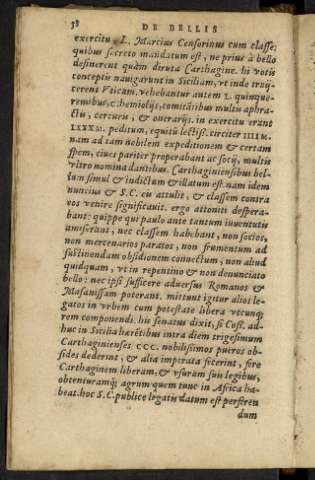 38 DE BELLIS
exercitu, L. Marcius Censorinus cum classe:
quibus secreto mandatum est, ne prius à bello
desinerent quàm diruta Carthagine. hi votis
conceptis nauigarunt in Siciliam, vt inde traij-
cerent Vticam. vehebantur autem L. quinque-
remibus, c. hemiolijs, comitātibus multis aphra-
ctis, cercuris, & onerarijs. in exercitu erant
LXXXM. peditum, equitū lectiss. circiter IIIIM.
nam ad tam nobilem expeditionem & certam
spem, ciues pariter properabant ac socij, multis
vltro nomina dantibus. Carthaginiensibus bel-
lum simul & indictum & illatum est. nam idem
nuncius & S.C. eis attulit, & classem contra
eos venire significauit. ergo attoniti despera-
bant: quippe qui paulo ante tantum iuuentutis
amiserant, nec classem habebant, non socios,
non mercenarios paratos, non frumentum ad
sustinendam obsidionem conuectum, non aliud
quidquam, vt in repentino & non denunciato
bello: nec ipsi sufficere aduersus Romanos &
Masanissam poterant. mittunt igitur alios le-
gatos in vrbem cum potestate libera vtcunq;
rem componendi. his senatus dixit, si Coss. ad-
huc in Sicilia hærētibus intra diem trigesimum
Carthaginienses CCC. nobilissimos pueros ob-
sides dederint, & alia imperata fecerint, fore
Carthaginem liberam, & vsuram suis legibus,
obtenturamq; agrum quem tunc in Africa ha-
beat. hoc S.C. publice legatis datum est perferen
dum